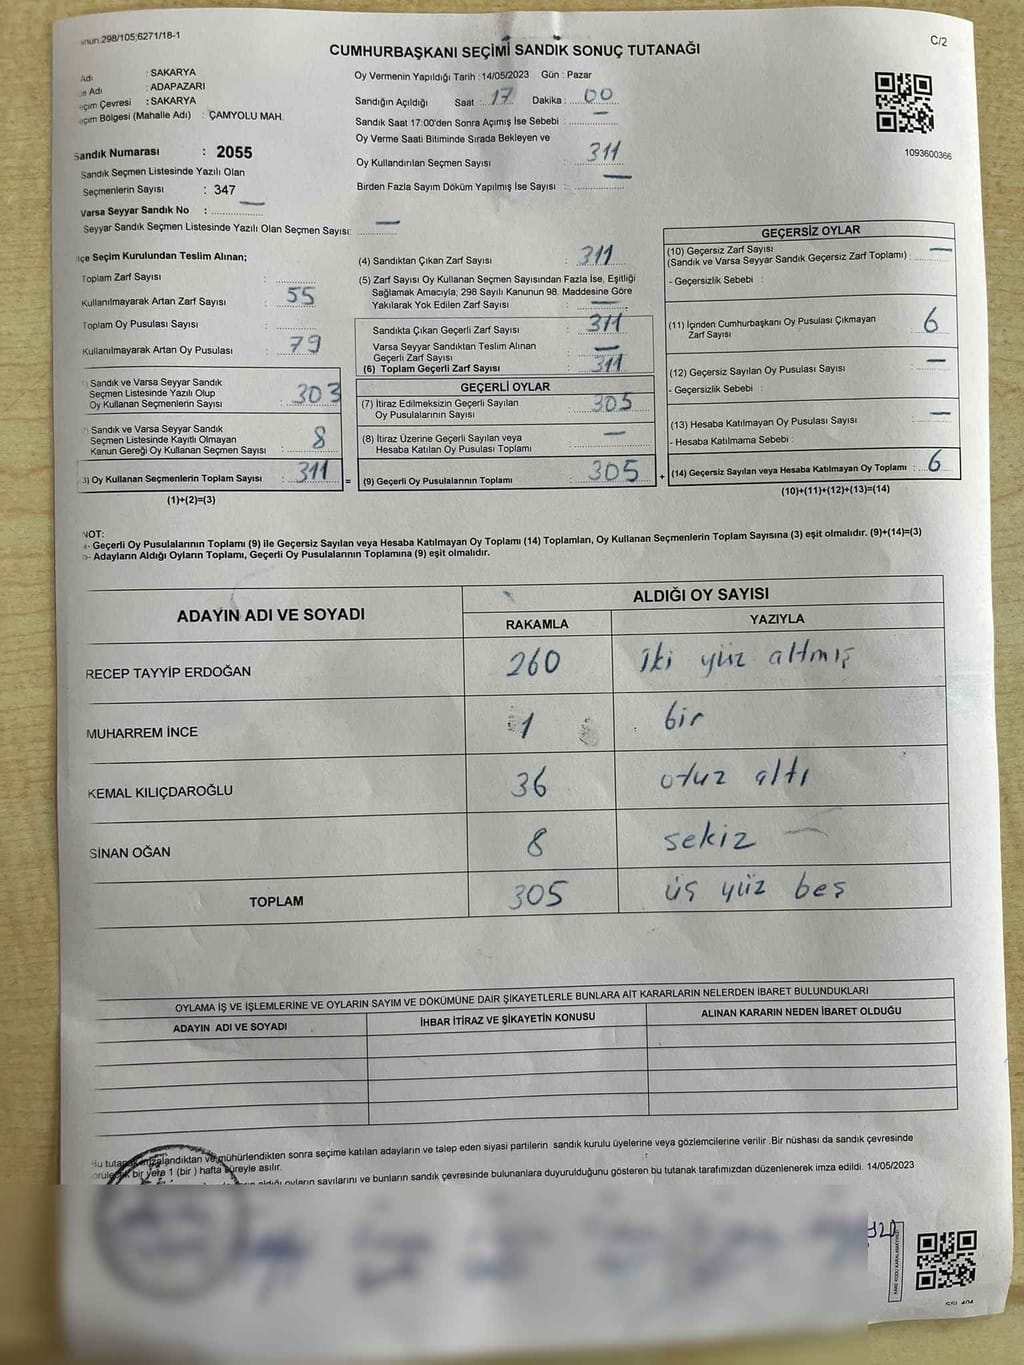 298/105;6271/18-1
C/2
CUMHURBAŞKANI SEÇİMİ SANDIK SONUÇ TUTANAĞI
Adı : SAKARYA
Adı : ADAPAZARI
Çevresi : SAKARYA
Bölgesi (Mahalle Adı) : ÇAMYOLU MAH.
Sandık Numarası : 2055
Sandık Seçmen Listesinde Yazılı Olan
Seçmenlerin Sayısı : 347
Varsa Seyyar Sandık No : —
Seyyar Sandık Seçmen Listesinde Yazılı Olan Seçmen Sayısı: —
Oy Vermenin Yapıldığı Tarih : 14/05/2023 Gün : Pazar
Sandığın Açıldığı Saat : 17 Dakika : 00
Sandık Saat 17:00'den Sonra Açımış İse Sebebi : —
Oy Verme Saati Bitiminde Sırada Bekleyen ve
Oy Kullandırılan Seçmen Sayısı : 311
Birden Fazla Sayım Döküm Yapılmış İse Sayısı : —
1093600366
Seçim Kurulundan Teslim Alınan;
Toplam Zarf Sayısı :
Kullanılmayarak Artan Zarf Sayısı : 55
Toplam Oy Pusulası Sayısı :
Kullanılmayarak Artan Oy Pusulası : 79
Sandık ve Varsa Seyyar Sandık
Seçmen Listesinde Yazılı Olup
Oy Kullanan Seçmenlerin Sayısı : 303
Sandık ve Varsa Seyyar Sandık
Seçmen Listesinde Kayıtlı Olmayan
Kanun Gereği Oy Kullanan Seçmen Sayısı : 8
3) Oy Kullanan Seçmenlerin Toplam Sayısı : 311 =
(1)+(2)=(3)
(4) Sandıktan Çıkan Zarf Sayısı : 311
(5) Zarf Sayısı Oy Kullanan Seçmen Sayısından Fazla İse, Eşitliği
Sağlamak Amacıyla; 298 Sayılı Kanunun 98. Maddesine Göre
Yakılarak Yok Edilen Zarf Sayısı : —
Sandıkta Çıkan Geçerli Zarf Sayısı : 311
Varsa Seyyar Sandıktan Teslim Alınan
Geçerli Zarf Sayısı : —
(6) Toplam Geçerli Zarf Sayısı : 311
GEÇERLİ OYLAR
(7) İtiraz Edilmeksizin Geçerli Sayılan
Oy Pusulalarının Sayısı : 305
(8) İtiraz Üzerine Geçerli Sayılan veya
Hesaba Katılan Oy Pusulası Toplamı : —
(9) Geçerli Oy Pusulalarının Toplamı : 305 +
GEÇERSİZ OYLAR
(10) Geçersiz Zarf Sayısı
(Sandık ve Varsa Seyyar Sandık Geçersiz Zarf Toplamı) : —
- Geçersizlik Sebebi :
(11) İçinden Cumhurbaşkanı Oy Pusulası Çıkmayan
Zarf Sayısı : 6
(12) Geçersiz Sayılan Oy Pusulası Sayısı : —
- Geçersizlik Sebebi :
(13) Hesaba Katılmayan Oy Pusulası Sayısı : —
- Hesaba Katılmama Sebebi :
(14) Geçersiz Sayılan veya Hesaba Katılmayan Oy Toplamı : 6
(10)+(11)+(12)+(13)=(14)
NOT:
- Geçerli Oy Pusulalarının Toplamı (9) ile Geçersiz Sayılan veya Hesaba Katılmayan Oy Toplamı (14) Toplamları, Oy Kullanan Seçmenlerin Toplam Sayısına (3) eşit olmalıdır. (9)+(14)=(3)
- Adayların Aldığı Oyların Toplamı, Geçerli Oy Pusulalarının Toplamına (9) eşit olmalıdır.
ADAYIN ADI VE SOYADI
ALDIĞI OY SAYISI
RAKAMLA YAZIYLA
RECEP TAYYİP ERDOĞAN 260 iki yüz altmış
MUHARREM İNCE 1 bir
KEMAL KILIÇDAROĞLU 36 otuz altı
SİNAN OĞAN 8 sekiz
TOPLAM 305 üç yüz beş
OYLAMA İŞ VE İŞLEMLERİNE VE OYLARIN SAYIM VE DÖKÜMÜNE DAİR ŞİKAYETLERLE BUNLARA AİT KARARLARIN NELERDEN İBARET BULUNDUKLARI
ADAYIN ADI VE SOYADI İHBAR İTİRAZ VE ŞİKAYETİN KONUSU ALINAN KARARIN NEDEN İBARET OLDUĞU
Bu mühürlendikten sonra seçime katılan adayların ve talep eden siyasi partilerin sandık kurulu üyelerine veya gözlemcilerine verilir .Bir nüshası da sandık çevresinde
bir yere 1 (bir ) hafta süreyle asılır.
aldığı oyların sayılarını ve bunların sandık çevresinde bulunanlara duyurulduğunu gösteren bu tutanak tarafımızdan düzenlenerek imza edildi. 14/05/2023